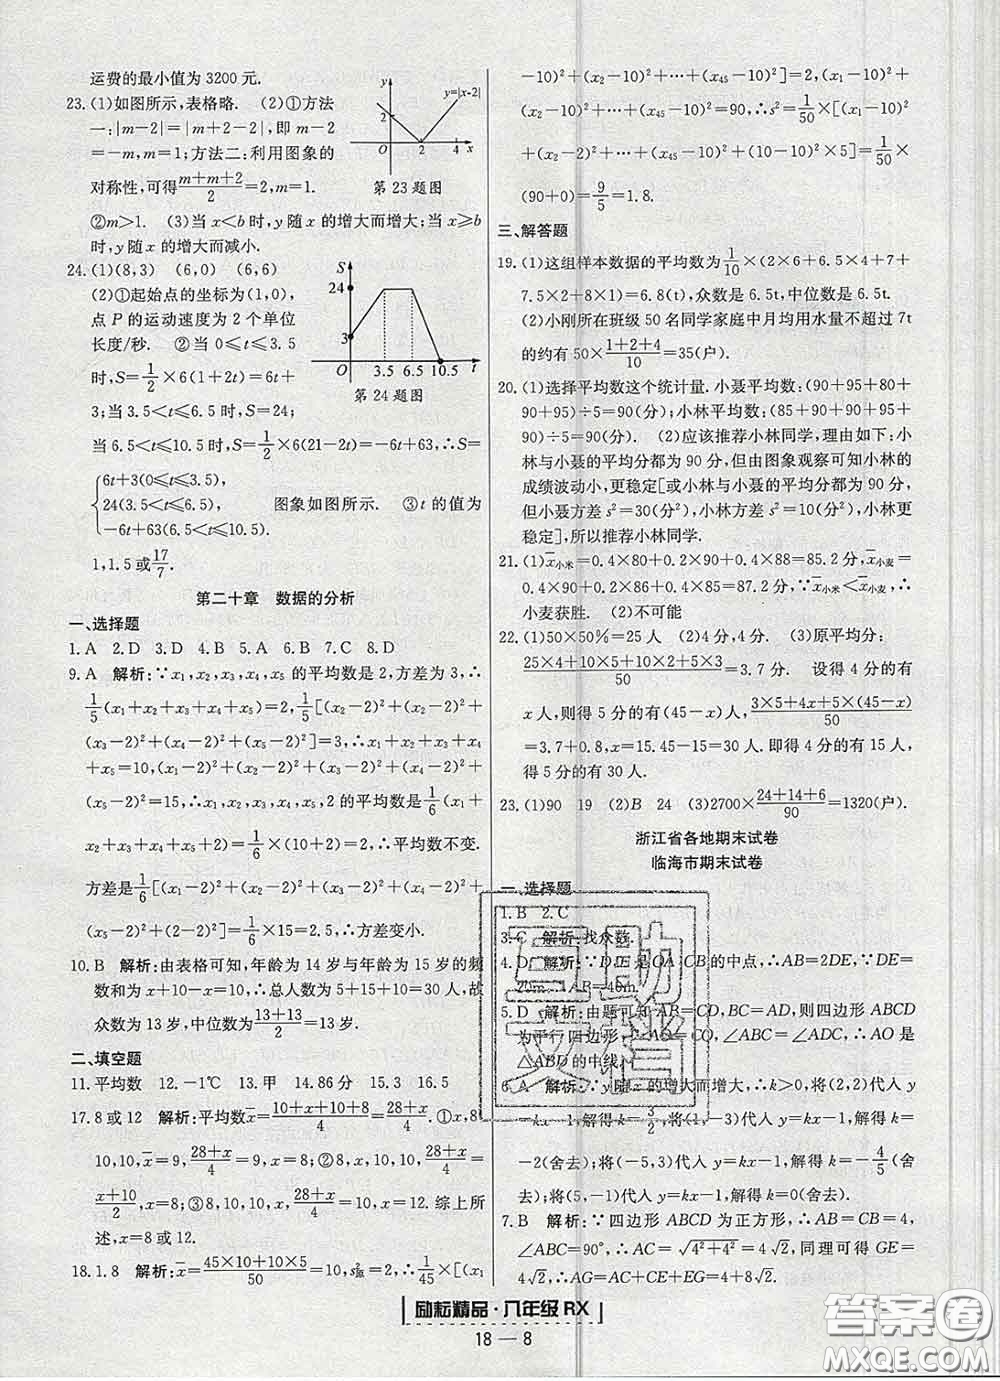 运费的最小值为 3200 元.
23. (1)如图所示,表格略. (2)①方法
一:|m−2|=|m+2−2|,即 m−2
=−m,m=1;方法二:利用图象的
对称性,可得(m+m+2)/2=2,m=1.
y
y=|x-2|
2
O 2 4 x
第 23 题图
②m>1. (3)当 x<b 时,y 随 x 的增大而增大;当 x≥b
时,y 随 x 的增大而减小.
24. (1)(8,3) (6,0) (6,6)
(2)①起始点的坐标为(1,0),
点 P 的运动速度为 2 个单位
长度/秒. ②当 0≤t≤3.5
时,S=1/2×6(1+2t)=6t+
3;当 3.5<t≤6.5 时,S=24;
S
24
3
O 3.5 6.5 10.5 t
第 24 题图
当 6.5<t≤10.5 时,S=1/2×6(21−2t)=−6t+63,∴S=
6t+3(0≤t≤3.5)
24(3.5<t≤6.5) 图象如图所示. ③t 的值为
−6t+63(6.5<t≤10.5).
1,1.5 或17/7.
第二十章 数据的分析
一、选择题
1. A 2. D 3. D 4. B 5. A 6. B 7. C 8. D
9. A 解析:∵x1,x2,x3,x4,x5 的平均数是 2,方差为 3,∴
1/5(x1+x2+x3+x4+x5)=2,1/5[(x1−2)²+(x2−2)²
+(x3−2)²+(x4−2)²+(x5−2)²]=3,∴x1+x2+x3+x4
+x5=10,(x1−2)²+(x2−2)²+(x3−2)²+(x4−2)²+
(x5−2)²=15,∴x1,x2,x3,x4,x5,2 的平均数是1/6(x1+
x2+x3+x4+x5+2)=1/6×(10+2)=2,∴平均数不变.
方差是1/6[(x1−2)²+(x2−2)²+(x3−2)²+(x4−2)²+
(x5−2)²+(2−2)²]=1/6×15=2.5,∴方差变小.
10. B 解析:由表格可知,年龄为 14 岁与年龄为 15 岁的频
数和为 x+10−x=10,∴总人数为 5+15+10=30,故
众数为 13 岁,中位数为(13+13)/2=13 岁.
二、填空题
11. 平均数 12. −1℃ 13. 甲 14. 86 分 15. 3 16. 5
17. 8 或 12 解析:平均数x̄=(10+x+10+8)/4=(28+x)/4. ①x,8,
10,10,x̄=9,(28+x)/4=9,x=8;②8,10,x,10,(28+x)/4=
(x+10)/2,x=8;③8,10,10,x,(28+x)/4=10,x=12. 综上所
述,x=8 或 12.
18. 1.8 解析:x̄=(45×10+10×5)/50=10,s²原=2,∴1/45×[(x1
−10)²+(x2−10)²+⋯+(x45−10)²]=2,(x1−10)²+
(x2−10)²+⋯+(x45−10)²=90,∴s²=1/50×[(x1−10)²
+(x2−10)²+⋯+(x45−10)²+(10−10)²×5]=1/50×
(90+0)=9/5=1.8.
三、解答题
19. (1)这组样本数据的平均数为1/10×(2×6+6.5×4+7+
7.5×2+8×1)=6.8(t),众数是 6.5t,中位数是 6.5t.
(2)小刚所在班级 50 名同学家庭中月均用水量不超过 7t
的约有 50×(1+2+4)/10=35(户).
20. (1)选择平均数这个统计量. 小聂平均数:(90+95+80+
90+95)÷5=90(分);小林平均数:(85+90+90+95+
90)÷5=90(分). (2)应该推荐小林同学,理由如下:小
林与小聂的平均分都为 90 分,但由图象观察可知小林的
成绩波动小,更稳定[或小林与小聂的平均分都为 90 分,
但小聂方差 s²=30(分²),小林方差 s²=10(分²),小林更
稳定],所以推荐小林同学.
21. (1)x̄小米=0.4×80+0.2×90+0.4×88=85.2 分,x̄小麦=
0.4×90+0.2×86+0.4×85=87.2 分,∵x̄小米<x̄小麦,∴
小麦获胜. (2)不可能
22. (1)50×50%=25 人 (2)4 分,4 分. (3)原平均分:
(25×4+10×5+10×2+5×3)/50=3.7 分. 设得 4 分的有
x 人,则得 5 分的有(45−x)人,(3×5+4x+5×(45−x))/50
=3.7+0.8,x=15.45−15=30 人. 即得 4 分的有 15 人,
得 5 分的有 30 人.
23. (1)90 19 (2)B 24 (3)2700×(24+14+6)/90=1320(户).
浙江省各地期末试卷
临海市期末试卷
一、选择题
1. B 2. C
3. C 解析:找众数.
4. D 解析:∵D、E 是 OA、CB 的中点,∴AB=2DE,∵DE=
20m,∴AB=40m.
5. D 解析:由题可知 AB=CD,BC=AD,则四边形 ABCD
为平行四边形,∴AO=CO,∠ABC=∠ADC,∴AO 是
△ABD 的中线.
6. A 解析:∵y 随 x 的增大而增大,∴k>0,将(2,2)代入
y=kx−1,解得 k=3/2,将(1,−3)代入 y=kx−1,解得 k=
−2(舍去);将(−5,3)代入 y=kx−1,解得 k=−4/5(舍
去);将(5,−1)代入 y=kx−1,解得 k=0(舍去).
7. B 解析:∵四边形 ABCD 为正方形,∴AB=CB=4,
∠ABC=90°,∴AC=√(4²+4²)=4√2,同理可得 GE=
4√2,∴AG=AC+CE+EG−4=4+8√2.
励耘精品·八年级 RX
18 — 8
互助文档
答案圈
MXQE.COM